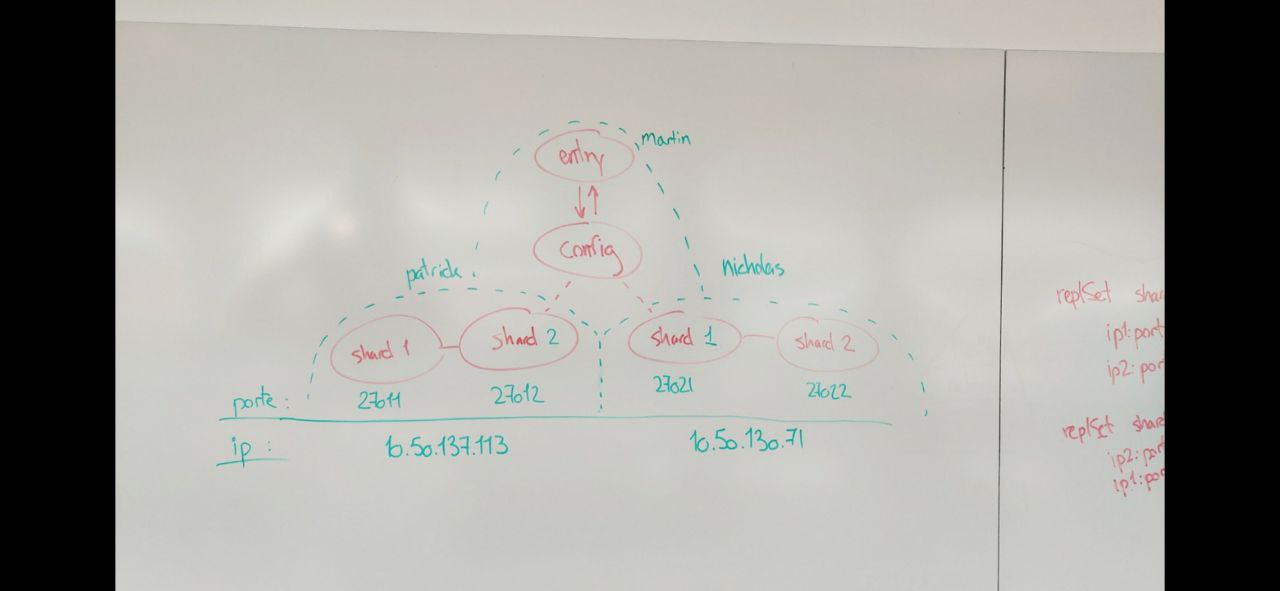 entry
martin
config
patrick
nicholas
shard 1
shard 2
shard 1
shard 2
porte :
27011
27012
27021
27022
ip :
10.50.137.113
10.50.130.71
replSet shar
ip1:port
ip2: por
replSet shard
ip2: port
ip1:por